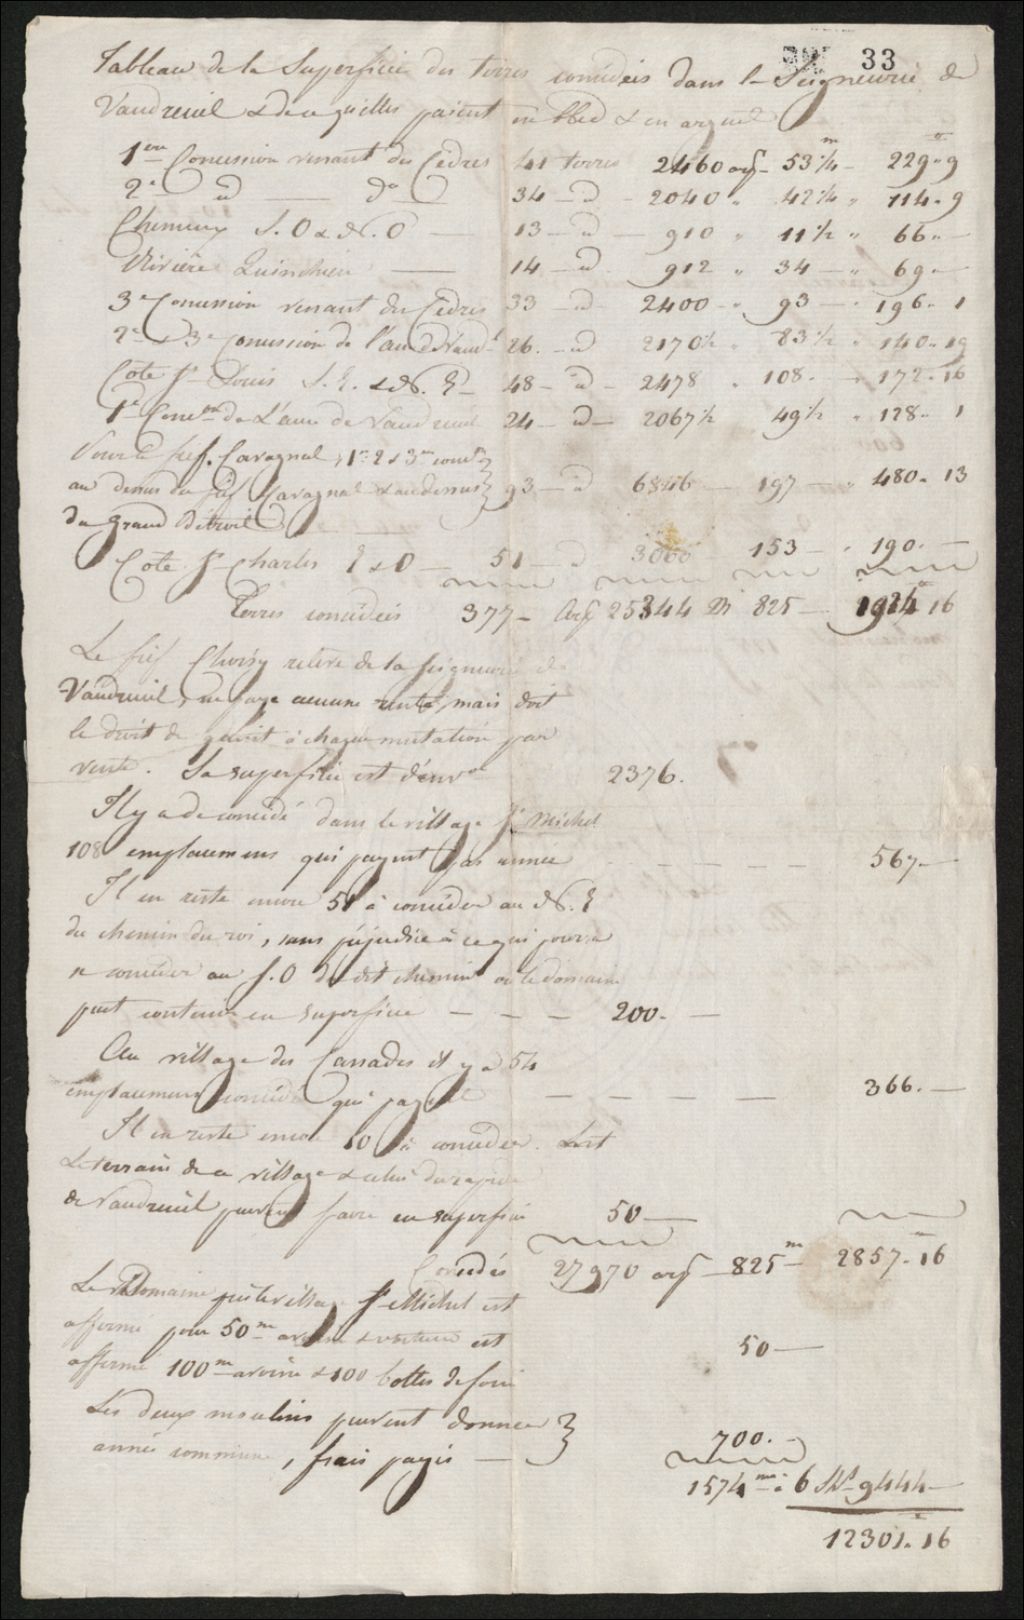 33
Tableau de la Superficie des terres concédées dans la Seigneurie de
Vaudreuil & de ce qu'elles paient en bled & en argent
1ere Concession venant des Cèdres 41 terres 2460 arp 53 1/4 m 229 " 9
2e id do 34 id 2040 " 42 1/4 " 114 " 9
Chenaux S.O & N.O 13 id 910 " 11 1/2 " 66 "
Rivière Quinchien 14 id 912 " 34 " 69
3e Concession venant des Cèdres 33 id 2400 " 93 196 " 1
2e & 3e Concession de l'anse de Vaudl 26 id 2170 1/2 83 1/2 " 140 " 19
Cote St Louis S.E. & N.E 48 id 2478 " 108 " 172 " 16
1e Concon de L'anse de Vaudreuil 24 id 2067 1/2 49 1/2 " 128 " 1
Pour le fief Cavagnal, 1re 2 & 3me conc
au dessus du fief Cavagnal & au dessus 93 id 6846 197 " 480 " 13
du Grand Détroit
Cote St Charles E & O 51 id 3060 153 " 190
Terres concédées 377 Arp 25344 M 825 1924 16
Le fief Choisy relève de la Seigneurie de
Vaudreuil, ne paye aucune rente, mais doit
le droit de quint à chaque mutation par
vente. Sa superficie est d'envon 2376.
Il y a de concédé dans le village St Michel
108 emplacemens qui payent par année 567
Il en reste encore 51 à concéder au N.E
du chemin du roi, sans préjudice à ce qui pourra
se concéder au S.O du dit chemin où le domaine
peut contenir en superficie 200.
Au village des Cascades il y a 54
emplacemens concédés qui payent 366.
Il en reste encore 10 à concéder.
Le terrain de ce village & celui du rapide
de Vaudreuil peuvent faire en superficie 50
Concédés 27970 arp 825 m 2857 " 16
Le Domaine près le village St Michel est
affermé pour 50 m avoine & est 50
affermé 100 m avoine & 100 bottes de foin
Les deux moulins peuvent donner
année commune, frais payés 700.
1574 m à 6 9444
12301 " 16